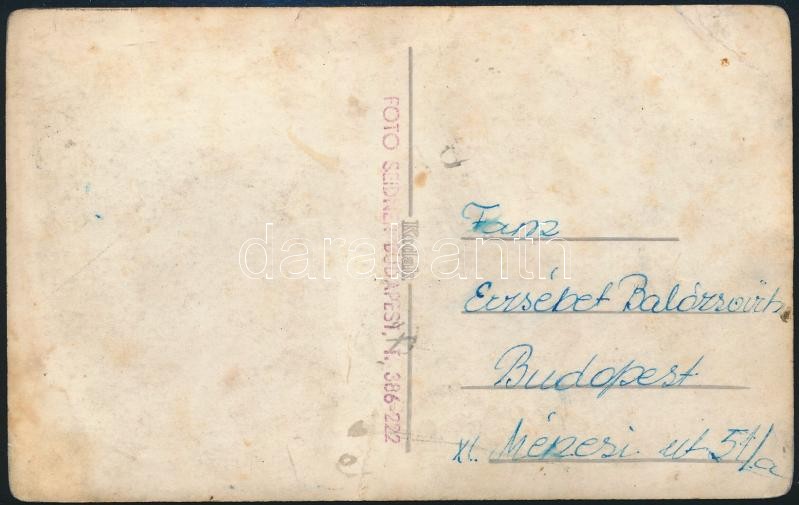 FOTO SEIDNER BUDAPEST, T. 386-222
Kodak
darabanth
Fanz
Erzsébet Balázsovith
Budapest
XI. Ménesi ut 51/a